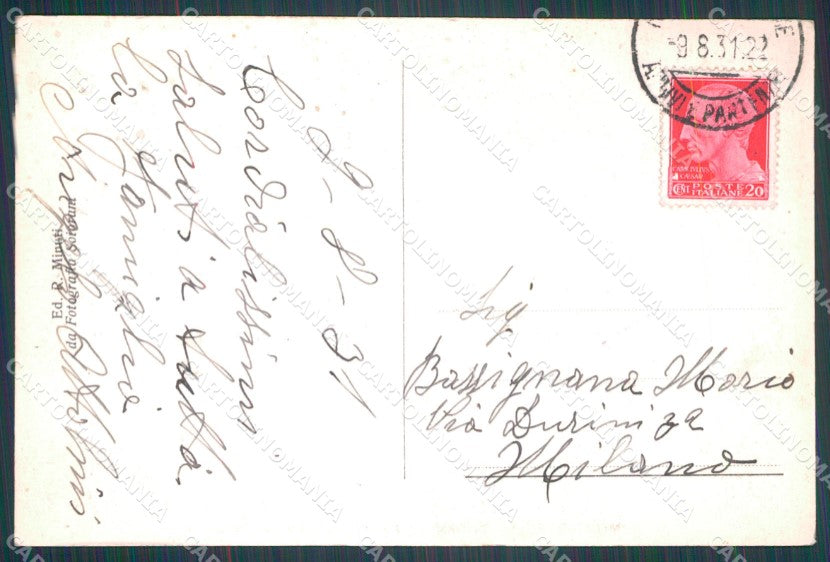 9-8-31
Cordialissimi
saluti a tutta
la famiglia
Ed. R. Minuti
da Fotografia
-9.8.31.22
CAIVS IVLIVS
CAESAR
CENT POSTE ITALIANE 20
Sig
Bassignana Mario
Via Durini 32
Milano
CARTOLINOMANIA